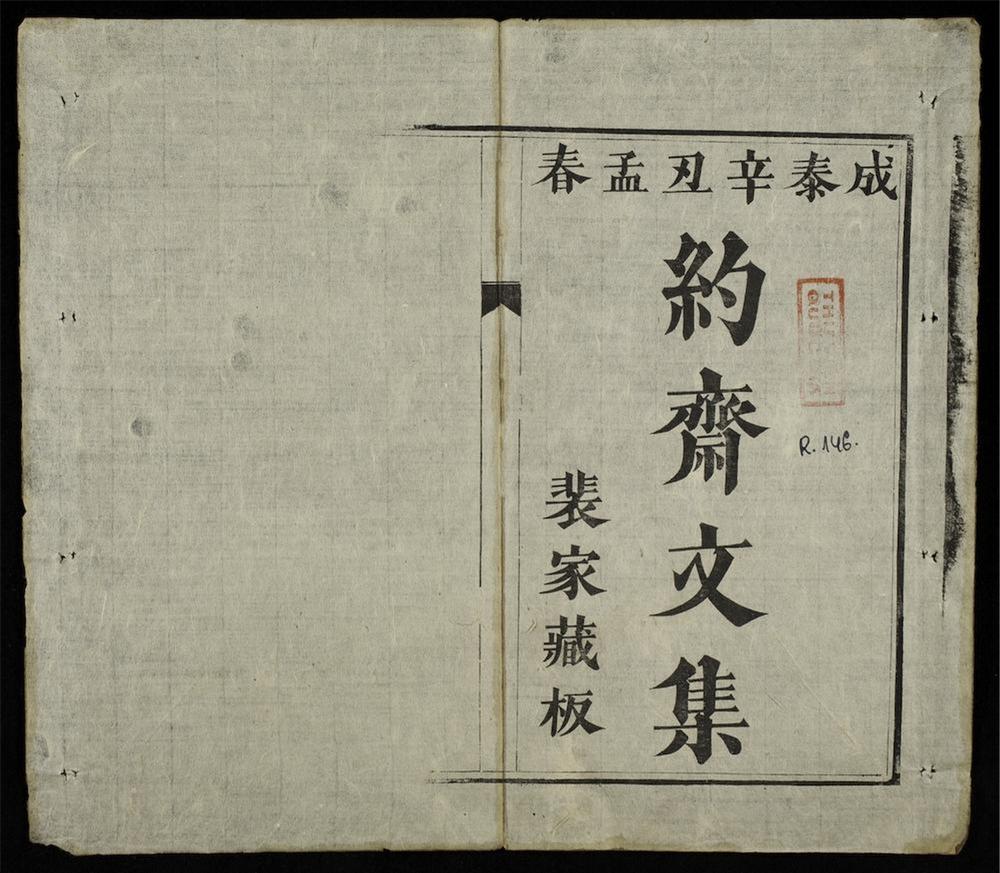 成泰辛丑孟春
約齋文集
裴家藏板
R.146.